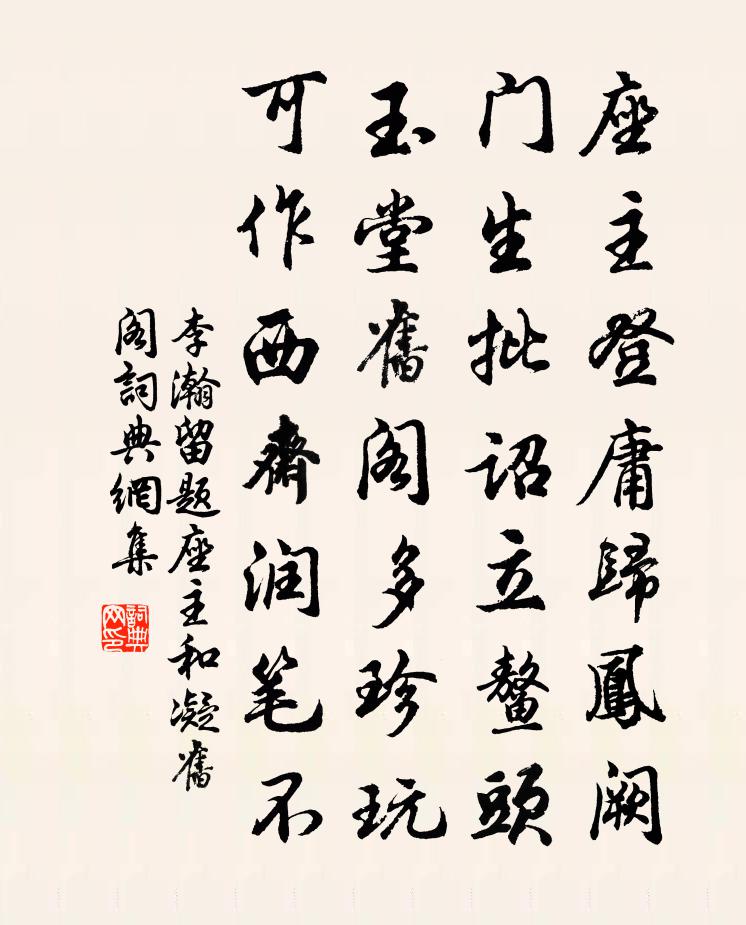 座主登庸歸鳳阙
门生批诏立鳌頭
玉堂舊阁多珍玩
可作西齋润笔不
李瀚留题座主和凝舊
阁詞典網集
詞典
网印